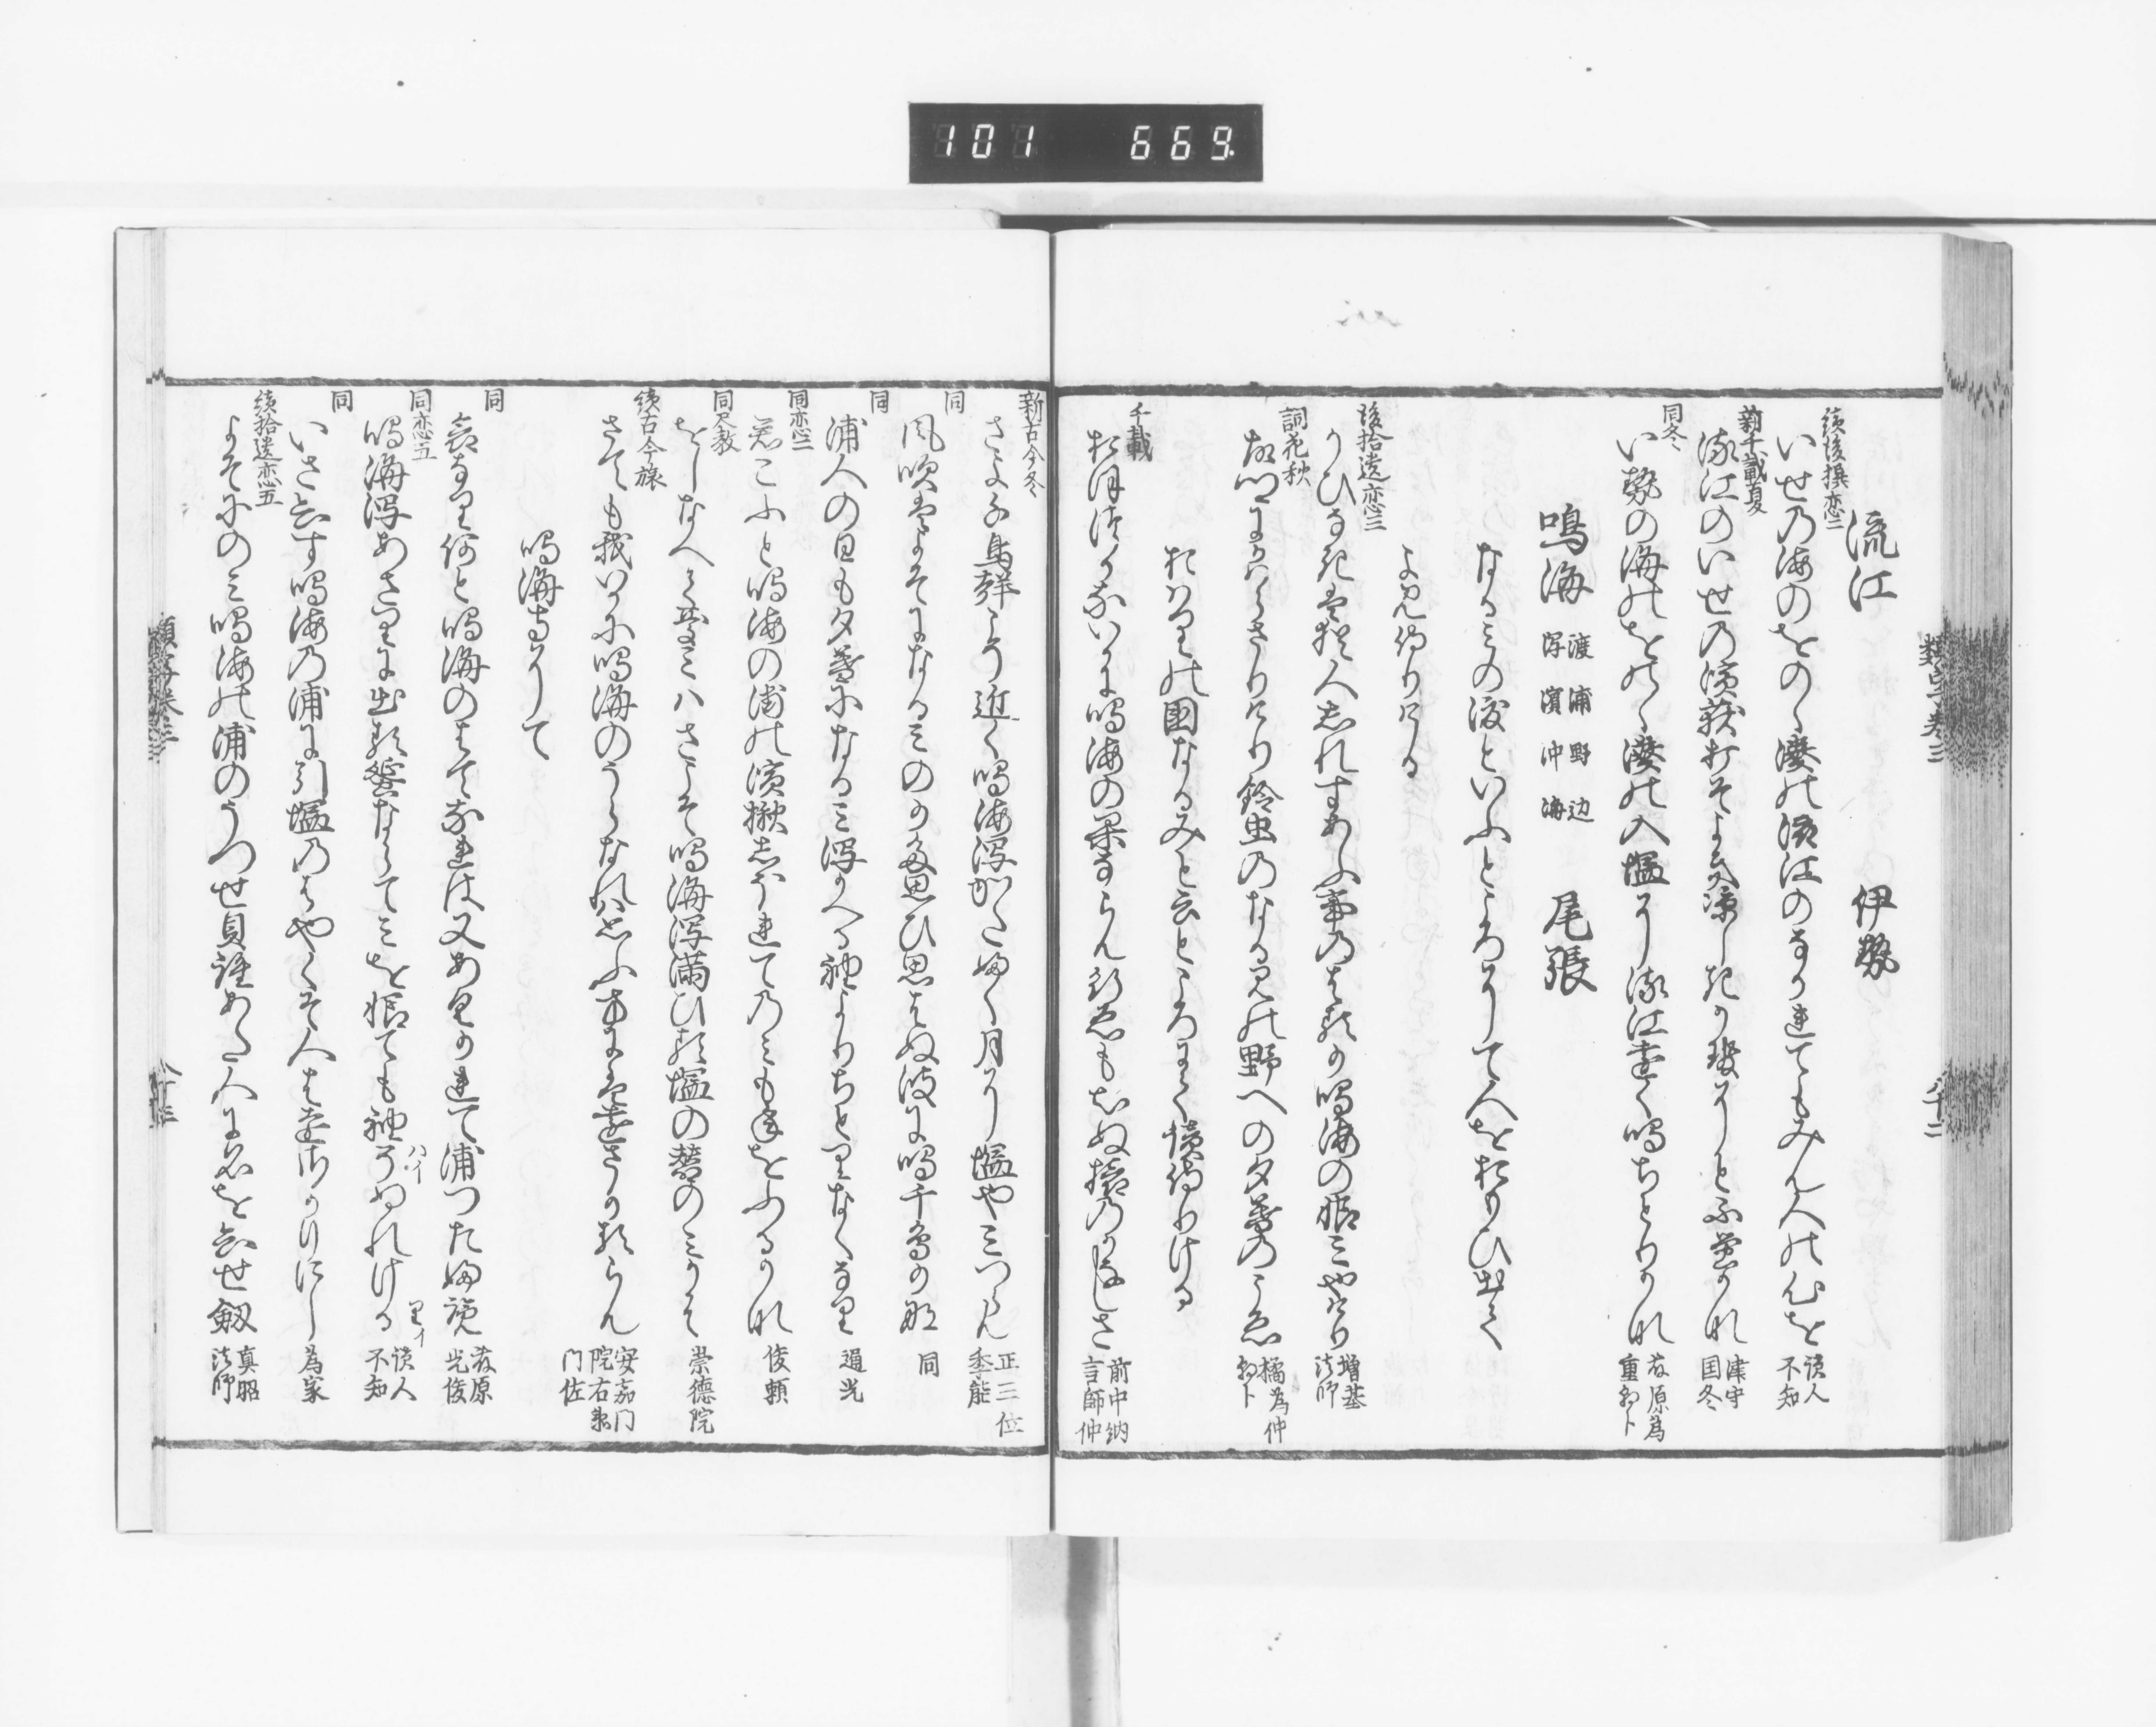 101 669
類字巻三
八十二
流江 伊勢
続後撰恋二
いせの海のをのゝ湊の流江のなかれてもみん人の心を 読人不知
新千載夏
流江のいせの濱荻打そよき涼しきか
津守国冬
同冬
いせの海のをのゝ湊の入塩に流江遠く鳴ちとりかな 藤原為重朝卜
鳴海 渡 浦 野 辺 潟 濱 沖 海 尾張
なるみの渡といふところにして人をおもひ出て
よみ侍りける
後拾遺恋三
かひなきは猶人しれすあふ事のはるか鳴海の恨みなりけり 増基法師
詞花秋
故郷にかはらさりけり鈴虫のなるみの野への夕暮のこゑ 橘為仲朝卜
おはりの国なるみと云ところにて読侍りける
千載
おほつかないかに鳴海の果ならん行ゑもしらぬ旅のかなしさ 前中納言師仲
新古今冬
さよ千鳥聲こそ近く鳴海潟かたふく月に塩やみつらん 正三位季能
同
風吹はよそになるみのかた思ひ思はぬ波に鳴千鳥かな 同
同
浦人の日も夕暮になるみ潟かへる袖より千とりなくなり 通光
同恋二
君こふと鳴海の浦の濱楸しほれてのみも年をふるかな 俊頼
同尺教
をしなへて
さそ鳴海潟満ひる塩の
崇徳院
続古今旅
さても我いかに鳴海のうらなれは思ふ方には遠さかるらん 安嘉門院右衛門佐
鳴海寺にて
同
哀なり何と鳴海のはてなれは又あくかれて浦つたふ覧 藤原光俊
同恋五
鳴海潟あさりに出る
ならてみを恨ても袖そぬれける ハイ りイ 読人不知
同
いさしらす鳴海の浦に引塩のはやくそ人は遠さかりにし 為家
続拾遺恋五
よそにのみ鳴海の浦のうつせ貝
名を
せ
真昭法師
類字巻三
八十三